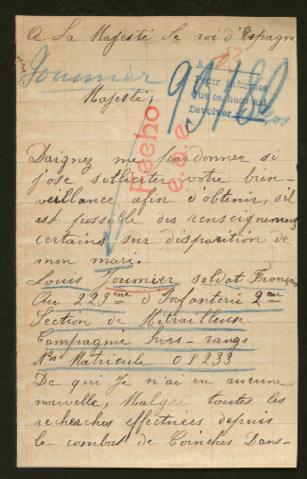 A Sa Majesté Le roi d'Espagne
Fournier
Majesté,
Pedir informes
Devolver
Hecho
Daignez me pardonner si
j'ose solliciter votre bien-
veillance afin d'obtenir, s'il
est possible des renseignements
certains sur disparition de
mon mari.
Louis Fournier soldat Français
Au 229me d'Infanterie 2me
Section de Mitrailleuse
Compagnie hors-rangs
No Matricule 08233
De qui Je n'ai eu aucune
nouvelle, Malgré toutes les
recherches effectuées depuis
le combat de Coinches Dans-